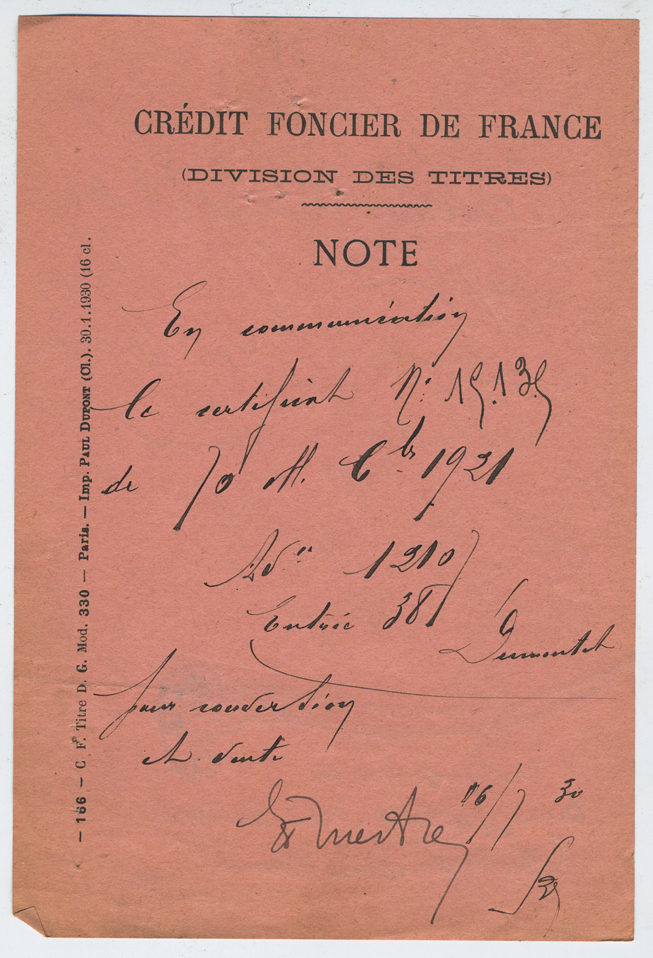 CRÉDIT FONCIER DE FRANCE
(DIVISION DES TITRES)
NOTE
En communication
le certificat N° 15.135
de 70 M. C les 1921
1210
Entrée 381
Dumontet
pour conversion
et vente
16/7 30
— 166 — C. Fr. Titre D. G. Mod. 330 — Paris. — Imp. PAUL DUPONT (Cl.). 30.1.1930 (16 cl.